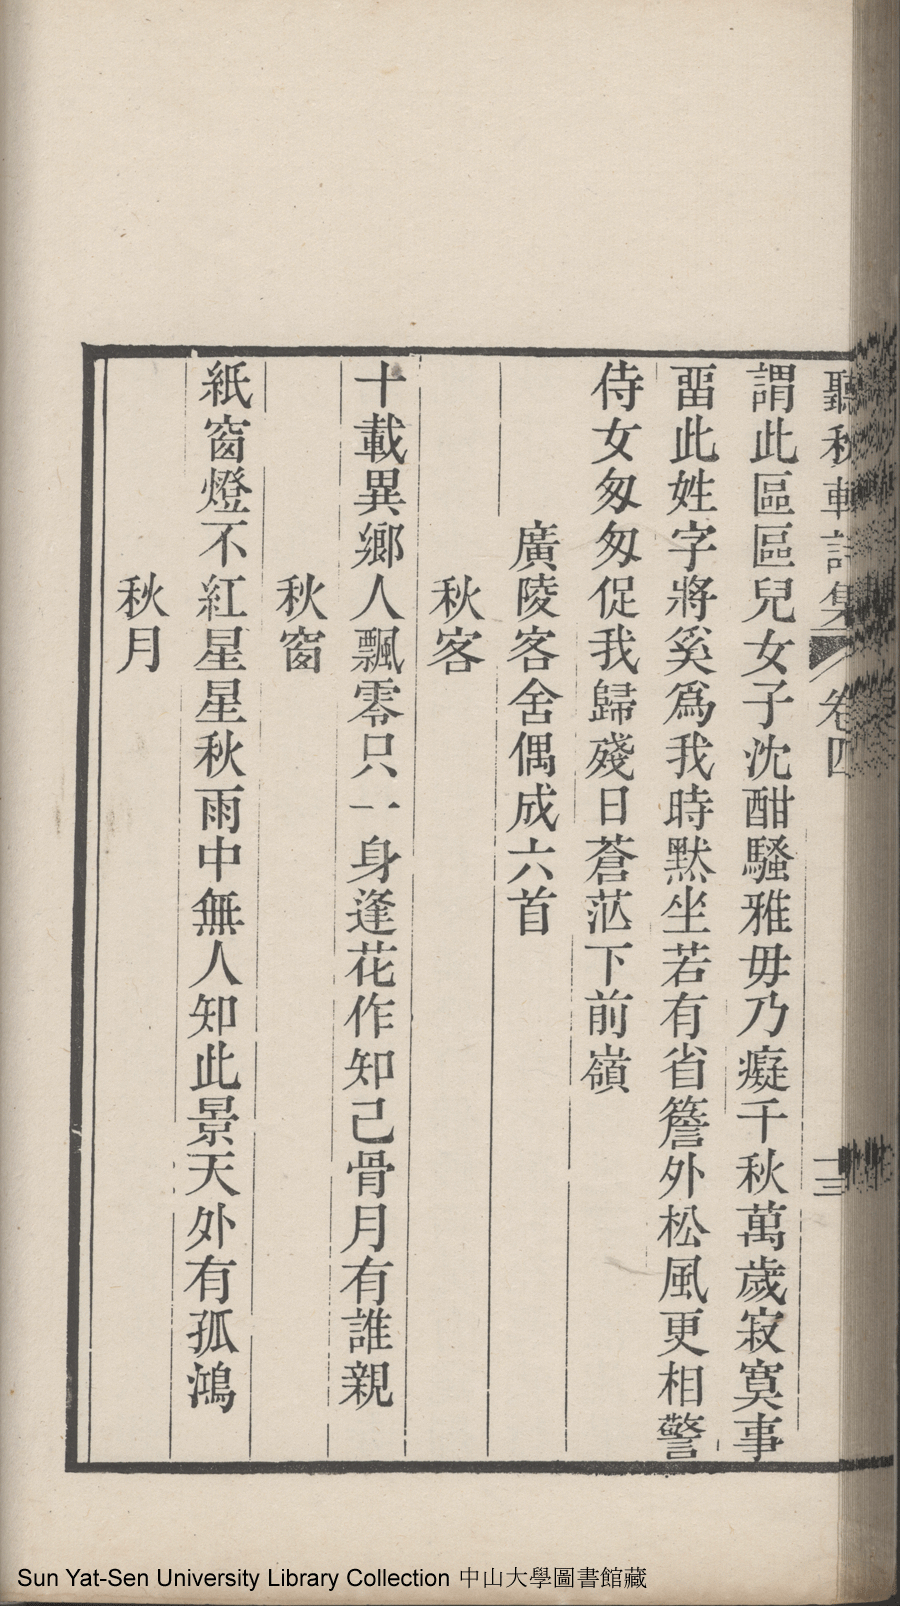 聽秋軒詩集 卷四 十三
謂此區區兒女子沈酣騷雅毋乃癡千秋萬歲寂寞事
畱此姓字將奚爲我時默坐若有省簷外松風更相警
侍女匆匆促我歸殘日蒼茫下前嶺
廣陵客舍偶成六首
秋客
十載異鄉人飄零只一身逢花作知己骨月有誰親
秋窗
紙窗燈不紅星星秋雨中無人知此景天外有孤鴻
秋月
Sun Yat-Sen University Library Collection 中山大學圖書館藏